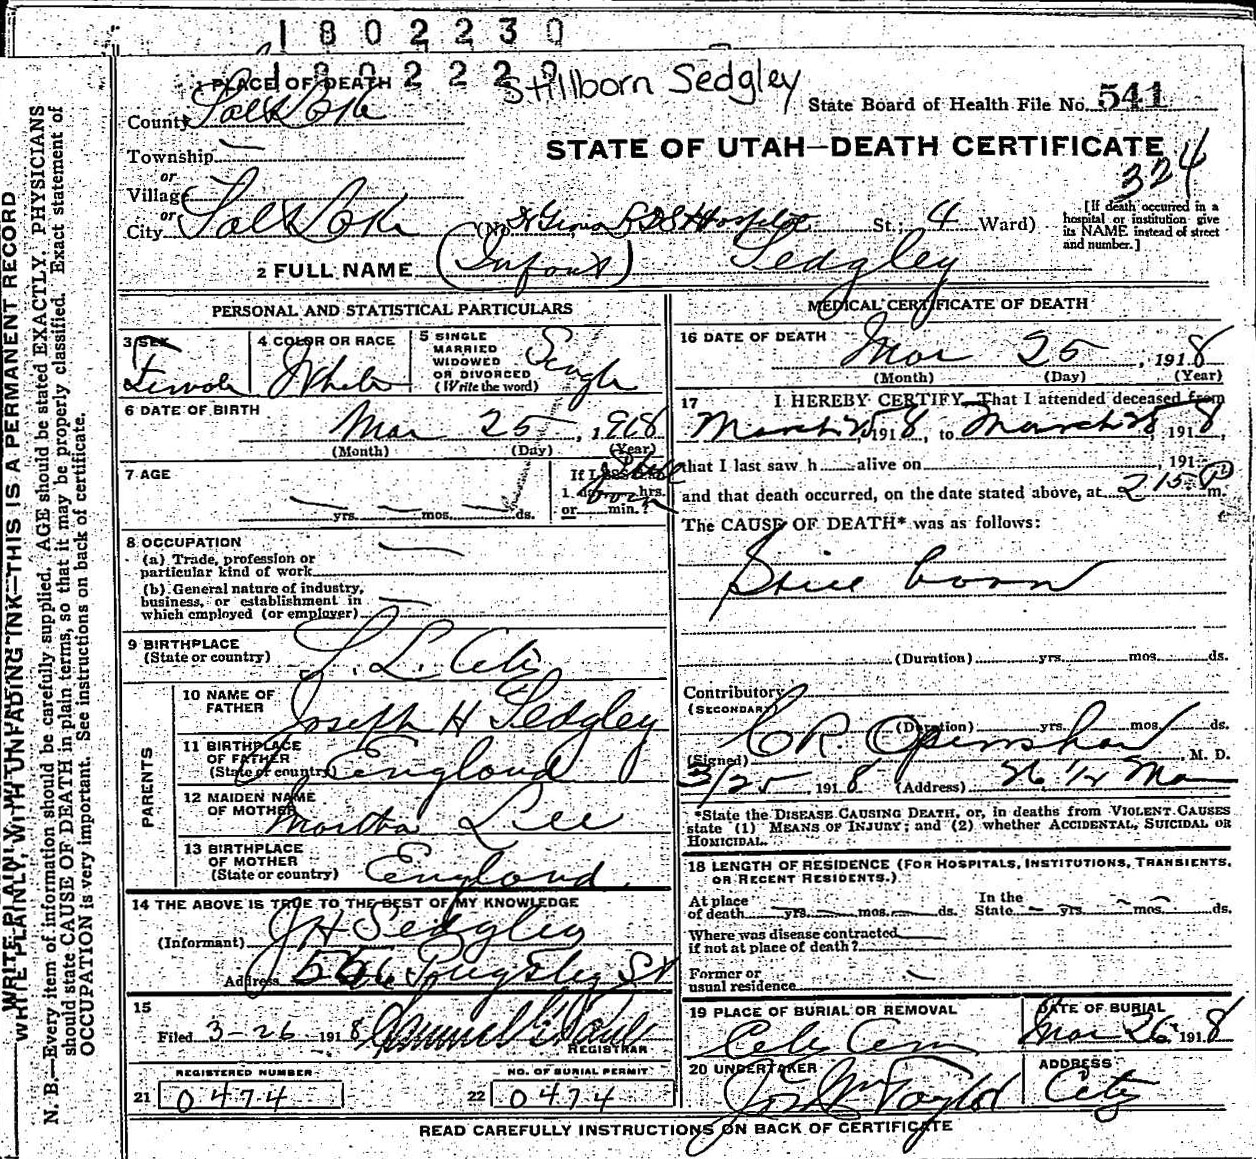 1802230
1802220
Stillborn Sedgley
1 PLACE OF DEATH
State Board of Health File No. 541
County Salt Lake
STATE OF UTAH—DEATH CERTIFICATE
324
Township —
or
Village
or
City Salt Lake (No. LDS Hospital St.; 4 Ward)
[If death occurred in a hospital or institution give its NAME instead of street and number.]
2 FULL NAME (Infant) Sedgley
PERSONAL AND STATISTICAL PARTICULARS
3 SEX Female
4 COLOR OR RACE White
5 SINGLE MARRIED WIDOWED OR DIVORCED (Write the word) Single
6 DATE OF BIRTH Mar 25, 1918
(Month) (Day) (Year)
7 AGE — yrs. — mos. — ds.
If LESS than 1 day, hrs. or min.? Still born
8 OCCUPATION —
(a) Trade, profession or particular kind of work
(b) General nature of industry, business, or establishment in which employed (or employer) —
9 BIRTHPLACE (State or country) S. L. City
PARENTS
10 NAME OF FATHER Joseph H Sedgley
11 BIRTHPLACE OF FATHER (State or country) England
12 MAIDEN NAME OF MOTHER Martha Lee
13 BIRTHPLACE OF MOTHER (State or country) England
14 THE ABOVE IS TRUE TO THE BEST OF MY KNOWLEDGE
(Informant) J H Sedgley
Address Pugsley St
15
Filed 3-26 1918
REGISTRAR
REGISTERED NUMBER
21 0474
NO. OF BURIAL PERMIT
22 0474
MEDICAL CERTIFICATE OF DEATH
16 DATE OF DEATH Mar 25, 1918
(Month) (Day) (Year)
17 I HEREBY CERTIFY, That I attended deceased from
March 25 1918, to March 25, 1918,
that I last saw h alive on , 191
and that death occurred, on the date stated above, at 215 P m.
The CAUSE OF DEATH* was as follows:
Still born
(Duration) yrs. mos. ds.
Contributory (SECONDARY)
(Duration) yrs. mos. ds.
(Signed) C R Openshaw M. D.
3/25 1918 (Address)
*State the DISEASE CAUSING DEATH, or, in deaths from VIOLENT CAUSES state (1) MEANS OF INJURY; and (2) whether ACCIDENTAL, SUICIDAL OR HOMICIDAL.
18 LENGTH OF RESIDENCE (FOR HOSPITALS, INSTITUTIONS, TRANSIENTS, OR RECENT RESIDENTS.)
At place of death — yrs. — mos. — ds. In the State — yrs. — mos. — ds.
Where was disease contracted if not at place of death? —
Former or usual residence —
19 PLACE OF BURIAL OR REMOVAL City Cem
DATE OF BURIAL Mar 26 1918
20 UNDERTAKER Jos Wm Taylor
ADDRESS City
READ CAREFULLY INSTRUCTIONS ON BACK OF CERTIFICATE
WRITE PLAINLY, WITH UNFADING INK—THIS IS A PERMANENT RECORD
N. B.—Every item of information should be carefully supplied. AGE should be stated EXACTLY. PHYSICIANS
should state CAUSE OF DEATH in plain terms, so that it may be properly classified. Exact statement of
OCCUPATION is very important. See instructions on back of certificate.